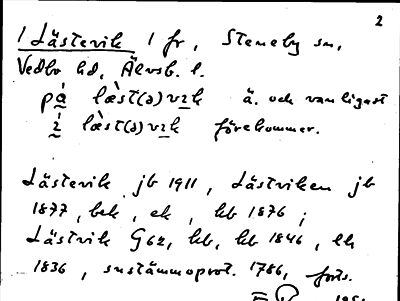 2
1 Lästevik 1 fr, Steneby sn,
Vedbo hd, Älvsb. l.
på̀ læ̀st(ə)vɪk ä. och vanligast
ì læ̀st(ə)vɪk förekommer.
Lästevik jb 1911, Lästviken jb
1877, bek, ek, kb 1876;
Lästvik G62, kb, kb 1846, ek
1836, sustämmoprot. 1786, forts.